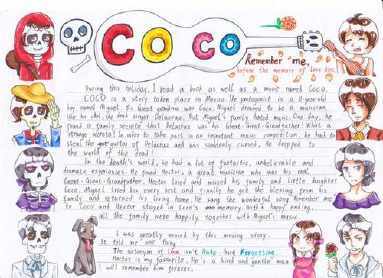 COCO
Remember me,
before the memory of love fades
During this holiday, I read a book as well as a movie named Coco.
COCO is a story taken place in Mexico. The protagonist is a 12-year-old
boy named Miguel. His great grandma was Coco. Miguel dreamed to be a musician
like his idol, the best singer Delacruz. But Miguel's family hated music. One day, he
found a family secret that Delacruz was his great-great-Grandfather. With a
strange
in order to take part in an important music competition, he had to
steal the guitar of Delacruz and was suddenly cursed. He trapped to
the world of the dead.
In the death's world, he had a lot of fantastic, unbelievable and
damage experiences. He found Hector, a great musician who was his real
Great-Great-Grandfather. Hector loved and missed his family and little daughter
Coco. Miguel tried his every best and finally he got the blessing from his
family and returned his living home. He sang the wonderful song Remember Me
to Coco and Hector stayed in Coco's memory. With a happy ending,
all the family were happily together with Miguel's music.
I was greatly moved by this moving story.
It told me one thing:
The antonym of Love isn't Hate, but Forgetting.
Hector is my favourite. He is a kind and gentle man.
I will remember him forever.